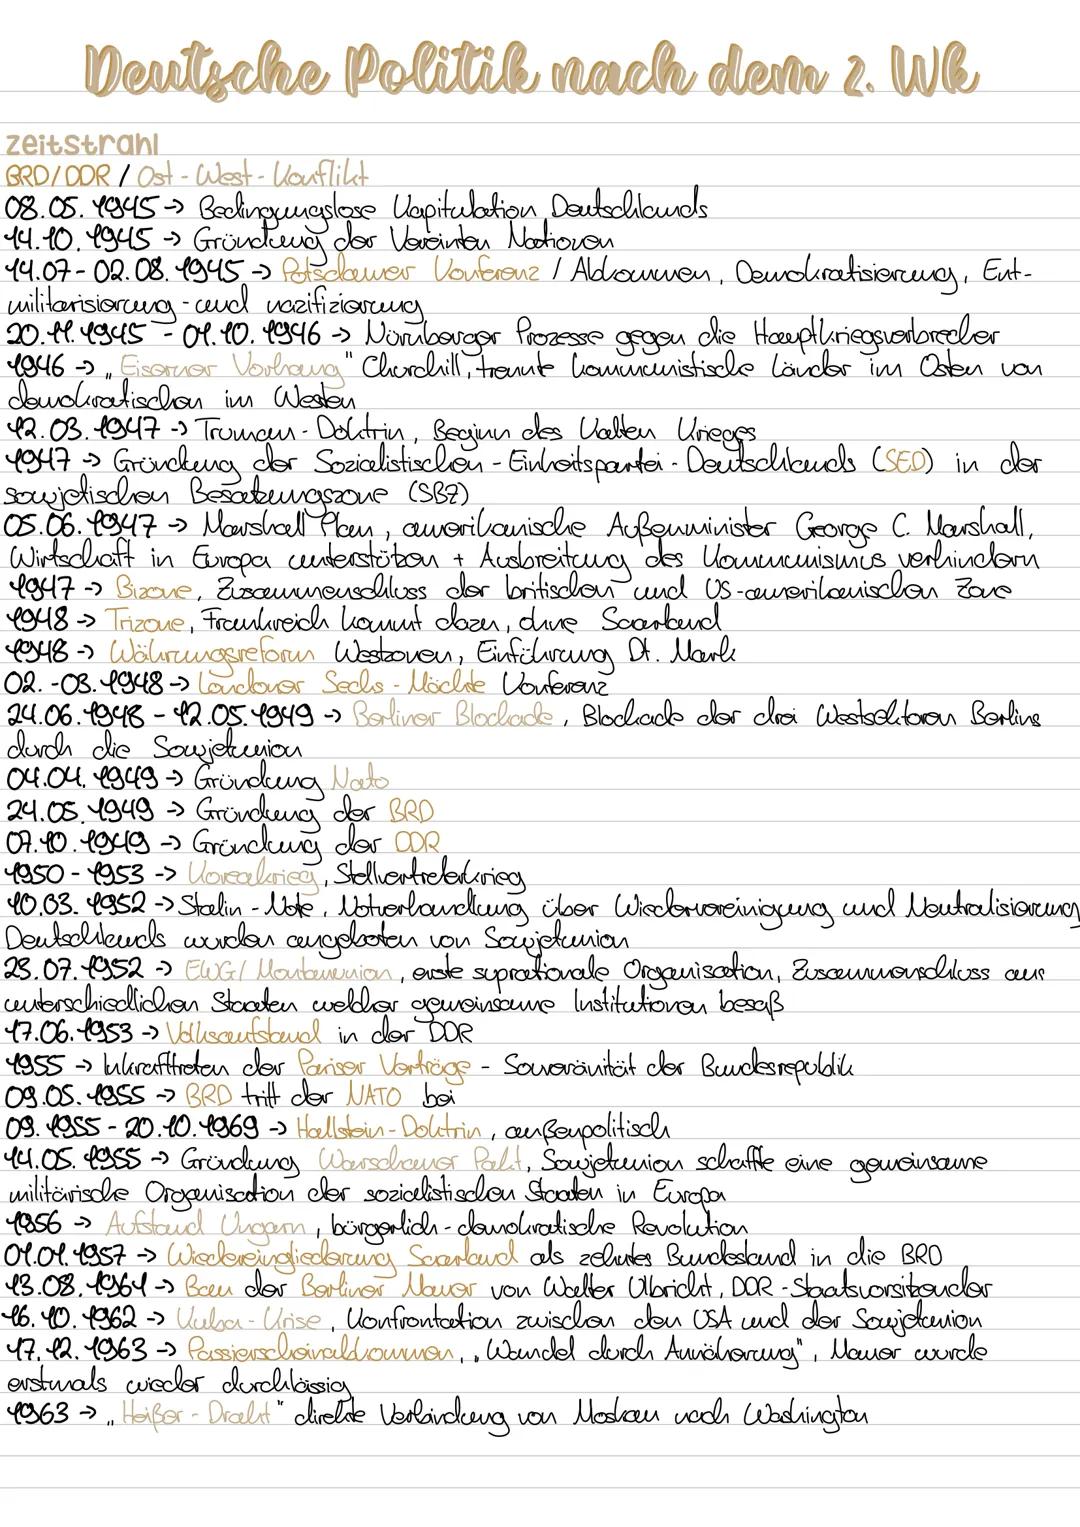 Deutsche Politik nach dem 2. Wk
zeitstrahl
BRD/DDR / Ost-West-Konflikt
08.05.1945 → Bedingungslose Kapitulation Deutschlands
14.10.1945 → Gründung der Vereinten Nationen
14.07-02.08.1945 → Potsdamer Konferenz / Abkommen, Demokratisierung, Ent-
militarisierung - und nazifizierung
20.11.1945 - 01.10.1946 → Nürnberger Prozesse gegen die Hauptkriegsverbrecher
1946 → „Eiserner Vorhang" Churchill, trennte kommunistische Länder im Osten von
demokratischen im Westen
12.03.1947 → Truman-Doktrin, Beginn des Kalten Krieges
1947 → Gründung der Sozialistischen-Einheitspartei-Deutschlands (SED) in der
sowjetischen Besatzungszone (SBZ)
05.06.1947 → Marshall Plan, amerikanische Außenminister George C. Marshall,
Wirtschaft in Europa unterstützen + Ausbreitung des Kommunismus verhindern
1947 → Bizone, Zusammenschluss der britischen und US-amerikanischen Zone
1948 → Trizone, Frankreich kommt dazu, ohne Saarland
1948 → Währungsreform Westzonen, Einführung Dt. Mark
02.-03.1948 → Londoner Sechs-Mächte Konferenz
24.06.1948 - 12.05.1949 → Berliner Blockade, Blockade der drei Westsektoren Berlins
durch die Sowjetunion
04.04.1949 → Gründung Nato
24.05.1949 → Gründung der BRD
07.10.1949 → Gründung der DDR
1950-1953 → Koreakrieg, Stellvertreterkrieg
10.03.1952 → Stalin-Note, Notverhandlung über Wiedervereinigung und Neutralisierung
Deutschlands wurden angeboten von Sowjetunion
23.07.1952 → EWG/ Montanunion, erste suprationale Organisation, Zusammenschluss aus
unterschiedlichen Staaten welcher gemeinsame Institutionen besaß
17.06.1953 → Volksaufstand in der DDR
1955 → Inkrafttreten der Pariser Verträge - Souveränität der Bundesrepublik
09.05.1955 → BRD tritt der NATO bei
09.1955 - 20.10.1969 → Hallstein-Doktrin, außenpolitisch
14.05.1955 → Gründung Warschauer Pakt, Sowjetunion schaffte eine gemeinsame
militärische Organisation der sozialistischen Staaten in Europa
1956 → Aufstand Ungarn, bürgerlich-demokratische Revolution
01.01.1957 → Wiedereingliederung Saarland als zehntes Bundesland in die BRD
13.08.1961 → Bau der Berliner Mauer von Walter Ulbricht, DDR-Staatsvorsitzender
16.10.1962 → Kuba-Krise, Konfrontation zwischen den USA und der Sowjetunion
17.12.1963 → Passierscheinabkommen, „Wandel durch Annäherung", Mauer wurde
erstmals wieder durchlässig
1963 → „Heißer-Draht" direkte Verbindung von Moskau nach Washington